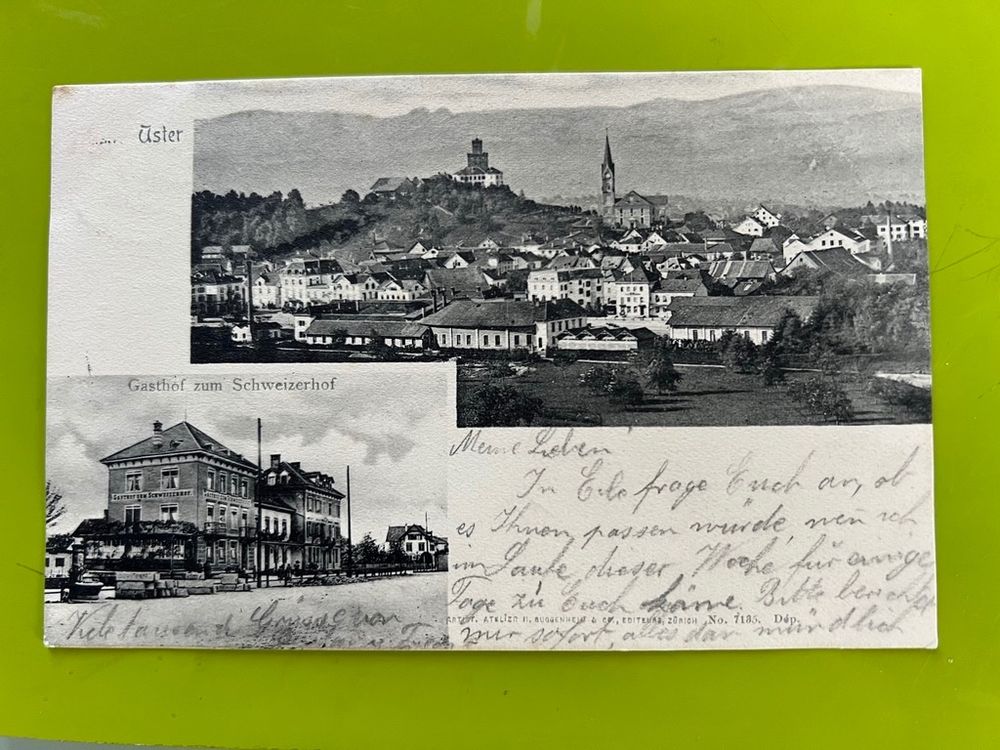 Uster
Gasthof zum Schweizerhof
GASTHOF ZUM SCHWEIZERHOF
Meine Lieben
In Eile frage Euch an, ob
es Ihnen passen würde, wen ich
im Laufe dieser Woche für einige
Tage zu Euch käme. Bitte berichtet
mir sofort, alles dan mündlich
ARTIST. ATELIER H. GUGGENHEIM & CO., EDITEURS, ZÜRICH No. 7135. Dép.
Vieltausend Grüsse von